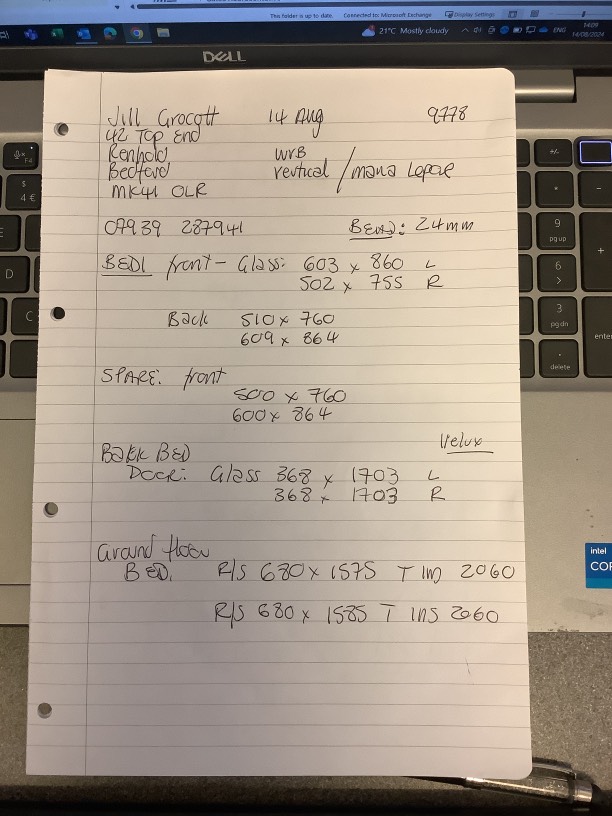 This folder is up to date. Connected to: Microsoft Exchange Display Settings
21°C Mostly cloudy ENG 14:09 14/08/2024
DELL
Jill Grocott 14 Aug 9778
42 Top End
Renhold WRB
Bedford vertical / mana Lepae
MK41 0LR
07939 287941 BEAD: 24mm
BED1 front - Glass: 603 x 860 L
502 x 755 R
Back 510 x 760
609 x 864
SPARE: front
500 x 760
600 x 864
Velux
Back BED
Door: Glass 368 x 1703 L
368 x 1703 R
Ground floor
BED. R/S 680 x 1575 T in 2060
R/S 680 x 1585 T ins 2060
F4
$
4 €
D
C
+/-
*
-
9
pg up
+
6
>
3
pg dn
enter
.
delete
intel
COR